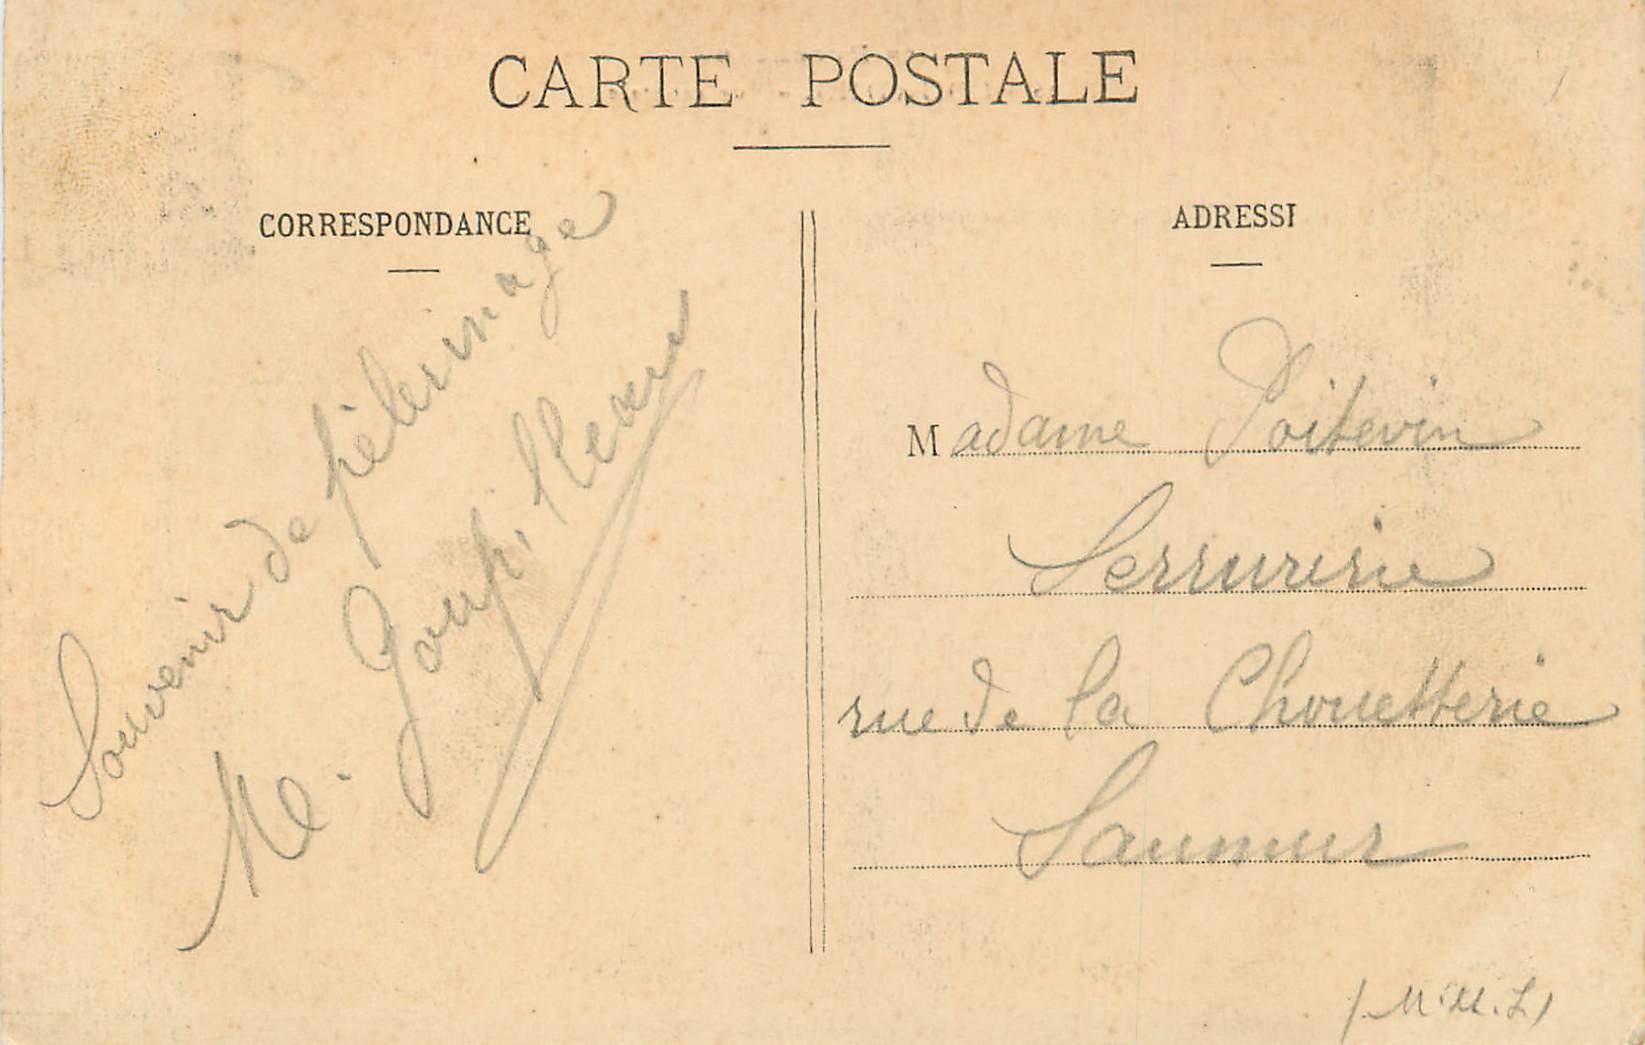 CARTE POSTALE
CORRESPONDANCE
Souvenir de pèlerinage
M.
ADRESSE
Madame Poitevin
Serrurerie
rue de la Chouetterie
Saumur
(M. & L.)